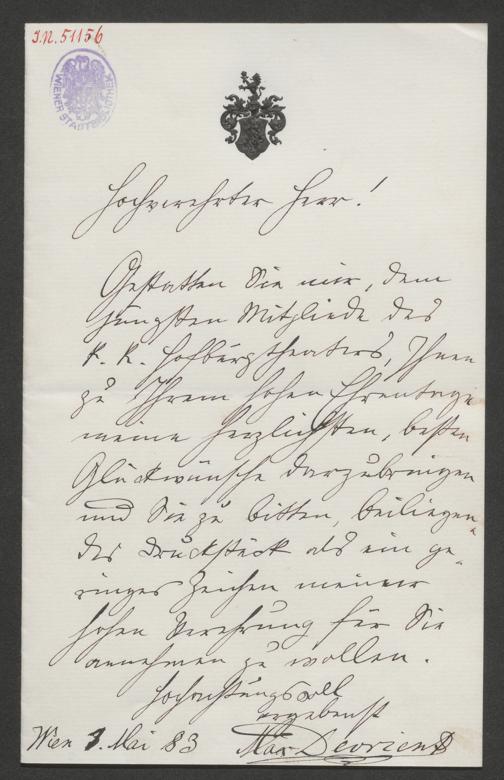 I.N. 51156
WIENER STADTBIBLIOTHEK
Hochverehrter Herr!
Gestatten Sie mir, dem
jüngsten Mitgliede des
k. k. Hofburgtheaters, Ihnen
zu Ihrem hohen Ehrentage
meine herzlichsten, besten
Glückwünsche darzubringen
und Sie zu bitten, beiliegen-
des Druckstück als ein ge-
ringes Zeichen meiner
hohen Verehrung für Sie
annehmen zu wollen.
Hochachtungsvoll
ergebenst
Wien 3. Mai 83 Max Devrient